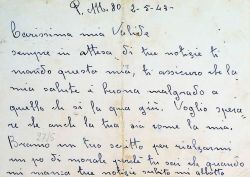 P. M. 80. 2-5-43-
Carissima mia Valide
sempre in attesa di tue notizie ti
mando questa mia, ti assicuro che la
mia salute è buona malgrado a
quello che si la qua giù. Voglio spera-
re che anchi la tua sia come la mia.
Bramo un tuo scritto per rialzarmi
un pò di morale perchè tu sai che quando
mi manca tue notizie subito mi abbatto